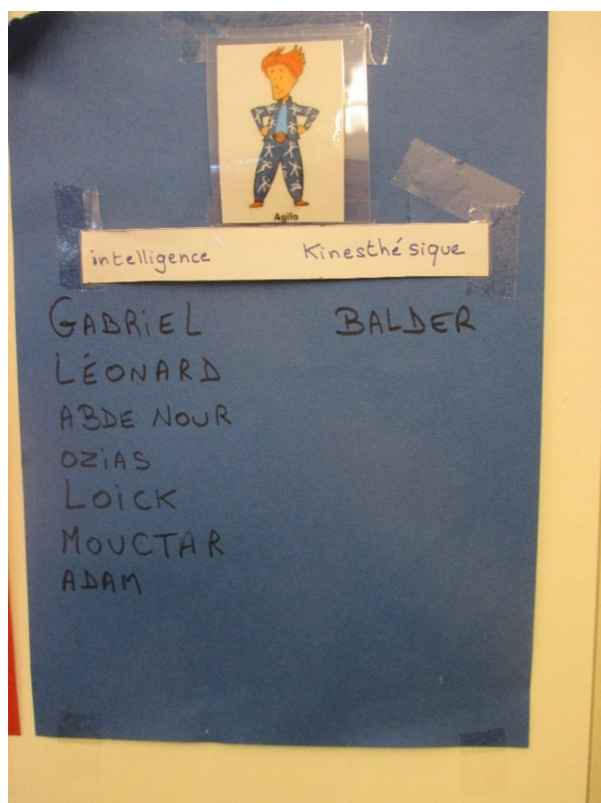 Agilo
intelligence Kinesthésique
GABRiEL BALDER
LÉONARD
ABDE NOUR
OZiAS
LOiCK
MOUCTAR
ADAM